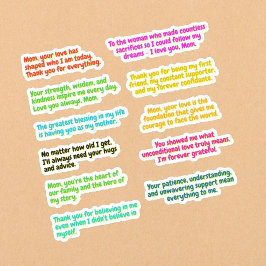 Mom, your love has
shaped who I am today.
Thank you for everything.
To the woman who made countless
sacrifices so I could follow my
dreams - I love you, Mom.
Your strength, wisdom, and
kindness inspire me every day.
Love you always, Mom.
Thank you for being my first
friend, my constant supporter,
and my forever confidante.
The greatest blessing in my life
is having you as my mother.
Mom, your love is the
foundation that gives me
courage to face the world.
No matter how old I get,
I'll always need your hugs
and advice.
You showed me what
unconditional love truly means.
I'm forever grateful.
Mom, you're the heart of
our family and the hero of
my story.
Your patience, understanding,
and unwavering support mean
everything to me.
Thank you for believing in me
even when I didn't believe in
myself.